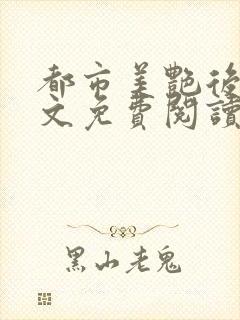 都市美艷後
文免費閱讀
黑山老鬼